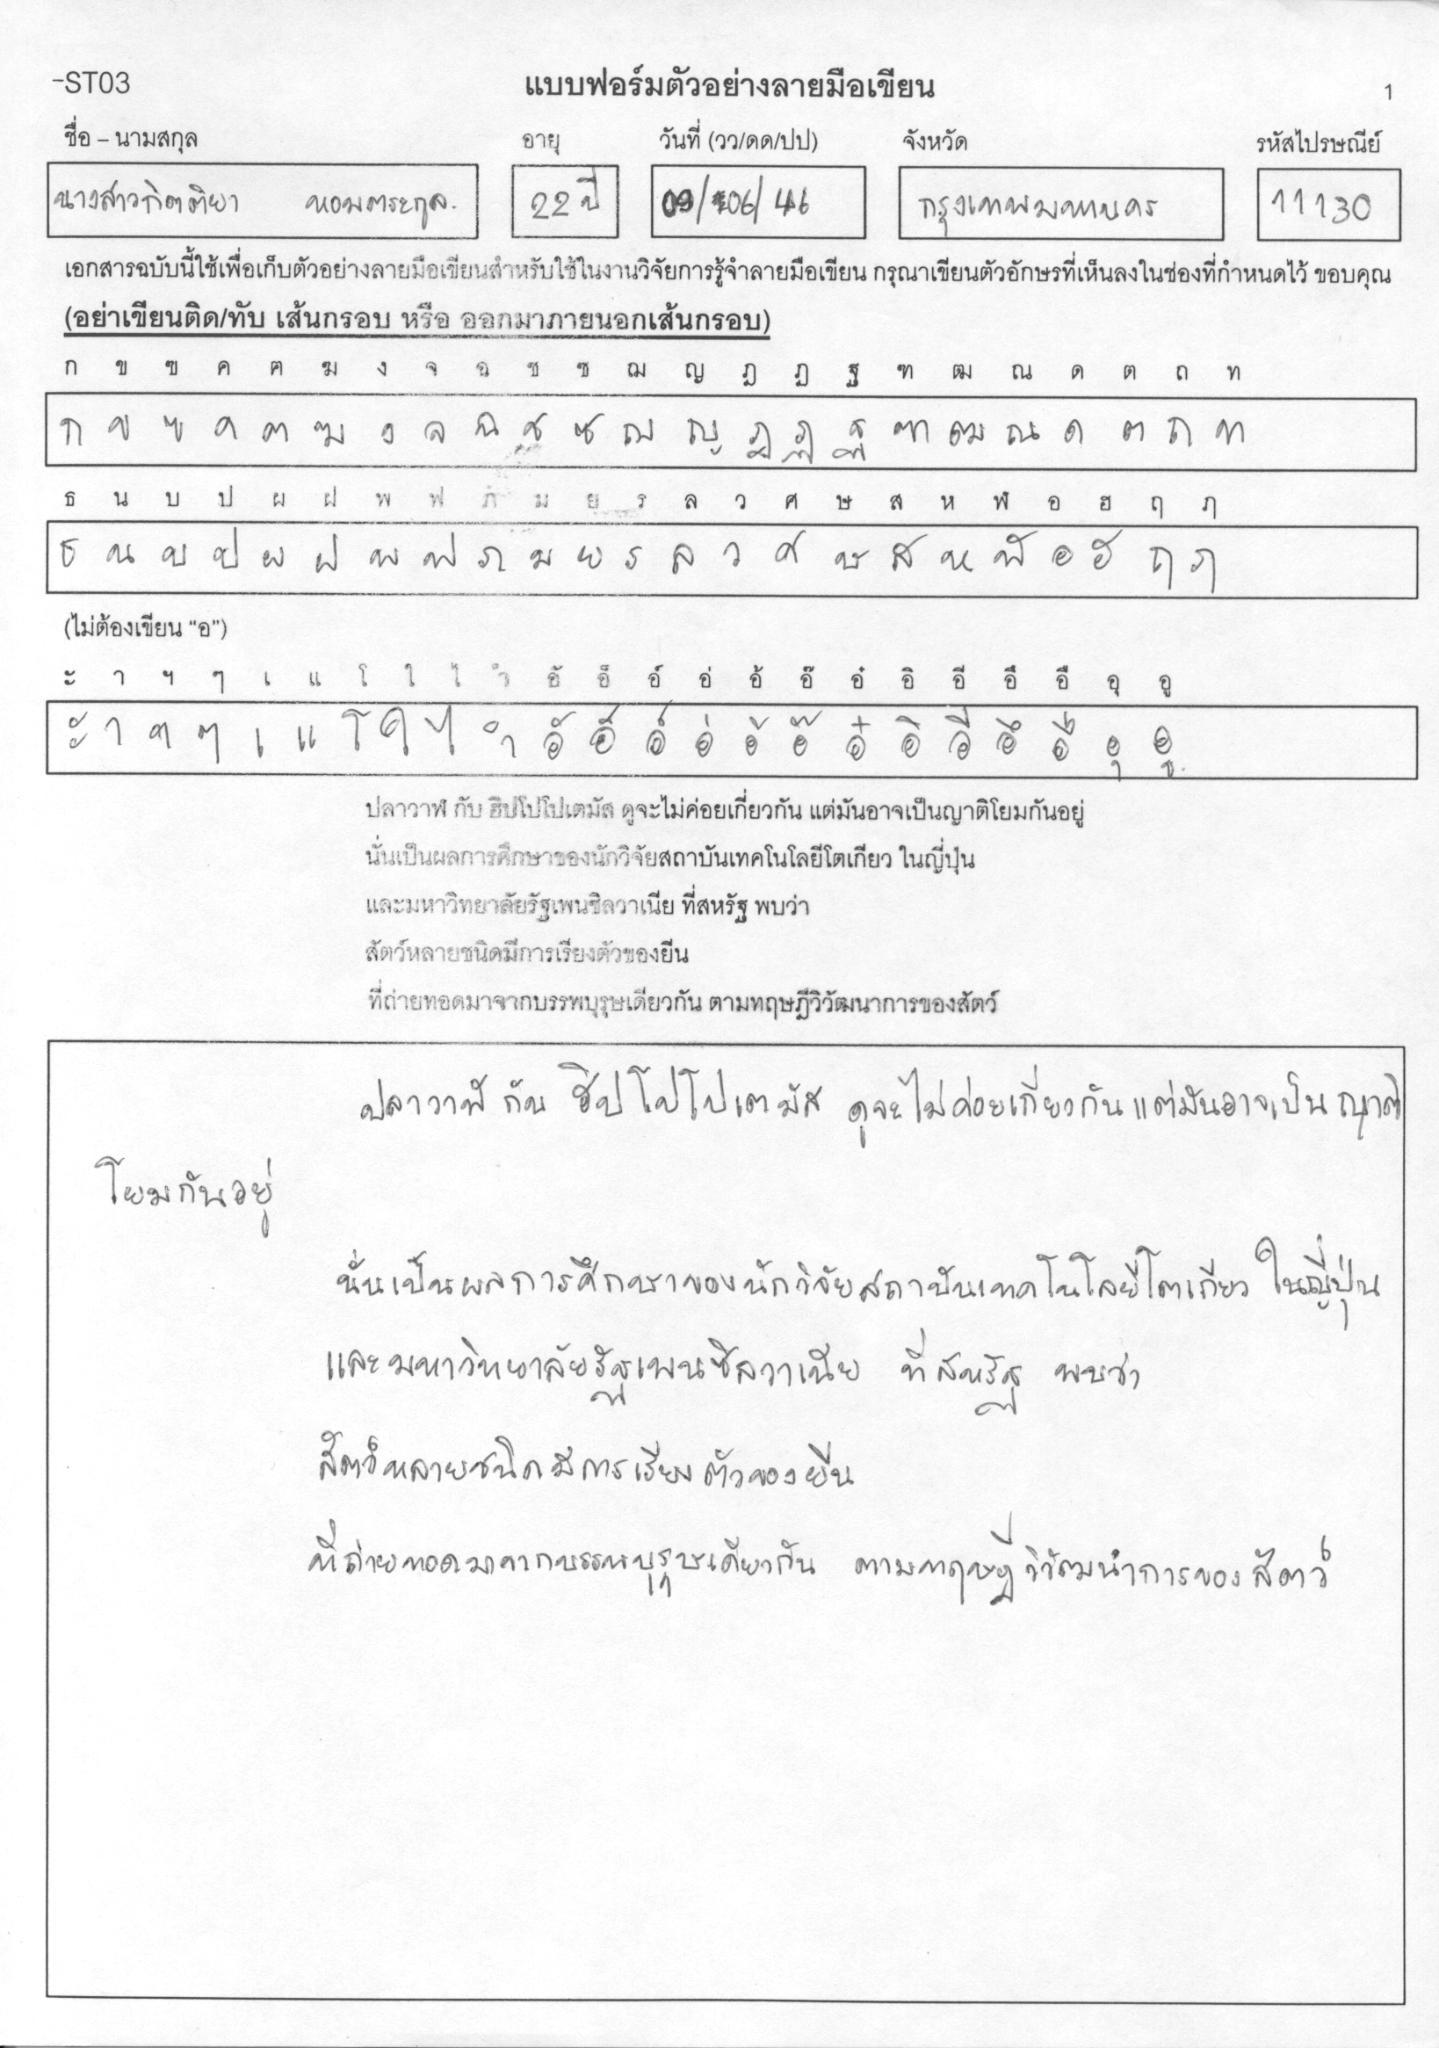 -ST03 แบบฟอร์มตัวอย่างลายมือเขียน 1
ชื่อ – นามสกุล อายุ วันที่ (วว/ดด/ปป) จังหวัด รหัสไปรษณีย์
นางสาวกิตติยา หอมตระกูล. 22 ปี 09/06/46 กรุงเทพมหานคร 11130
เอกสารฉบับนี้ใช้เพื่อเก็บตัวอย่างลายมือเขียนสำหรับใช้ในงานวิจัยการรู้จำลายมือเขียน กรุณาเขียนตัวอักษรที่เห็นลงในช่องที่กำหนดไว้ ขอบคุณ
(อย่าเขียนติด/ทับ เส้นกรอบ หรือ ออกมาภายนอกเส้นกรอบ)
ก ข ฃ ค ฅ ฆ ง จ ฉ ช ซ ฌ ญ ฎ ฏ ฐ ฑ ฒ ณ ด ต ถ ท
ก ข ฃ ค ฅ ฆ ง จ ฉ ช ซ ฌ ญ ฎ ฏ ฐ ฑ ฒ ณ ด ต ถ ท
ธ น บ ป ผ ฝ พ ฟ ภ ม ย ร ล ว ศ ษ ส ห ฬ อ ฮ ฤ ภ
ธ น บ ป ผ ฝ พ ฟ ภ ม ย ร ล ว ศ ษ ส ห ฬ อ ฮ ฤ ภ
(ไม่ต้องเขียน “อ”)
ะ า ฯ ๆ เ แ โ ใ ไ ำ อั อ็ อ์ อ่ อ้ อ๊ อ๋ อิ อี อึ อื อุ อู
ะ า ฯ ๆ เ แ โ ใ ไ ำ อั อ็ อ์ อ่ อ้ อ๊ อ๋ อิ อี อึ อื อุ อู
ปลาวาฬ กับ ฮิปโปโปเตมัส ดูจะไม่ค่อยเกี่ยวกัน แต่มันอาจเป็นญาติโยมกันอยู่
นั่นเป็นผลการศึกษาของนักวิจัยสถาบันเทคโนโลยีโตเกียว ในญี่ปุ่น
และมหาวิทยาลัยรัฐเพนซิลวาเนีย ที่สหรัฐ พบว่า
สัตว์หลายชนิดมีการเรียงตัวของยีน
ที่ถ่ายทอดมาจากบรรพบุรุษเดียวกัน ตามทฤษฎีวิวัฒนาการของสัตว์
ปลาวาฬ กับ ฮิปโปโปเตมัส ดูจะไม่ค่อยเกี่ยวกัน แต่มันอาจเป็น ญาติ
โยมกันอยู่
นั่นเป็นผลการศึกษาของนักวิจัยสถาบันเทคโนโลยีโตเกียว ในญี่ปุ่น
และมหาวิทยาลัยรัฐเพนซิลวาเนีย ที่สหรัฐ พบว่า
สัตว์หลายชนิดมีการเรียงตัวของยีน
ที่ถ่ายทอดมาจากบรรพบุรุษเดียวกัน ตามทฤษฎีวิวัฒนำการของสัตว์